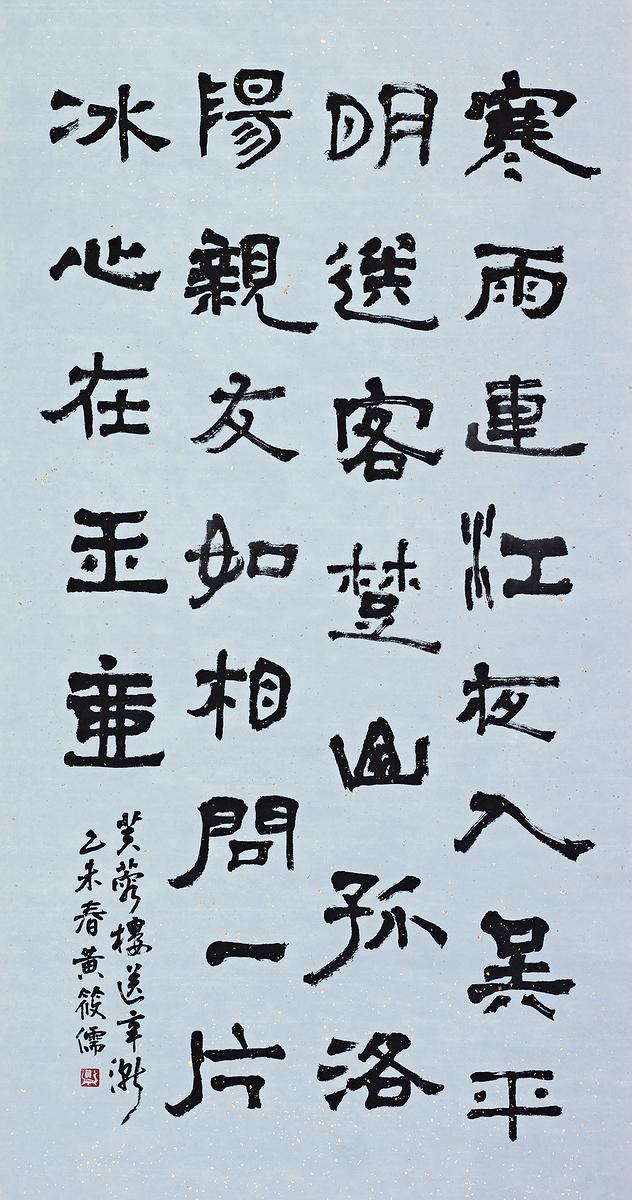 寒雨連江夜入吴平
明送客楚山孤洛
陽親友如相問一片
冰心在玉壺
芙蓉樓送辛漸
乙未春黄筱儒